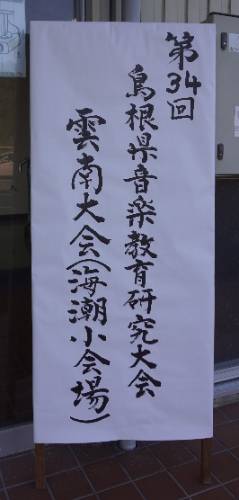 第34回
島根県音楽教育研究大会
雲南大会(海潮小会場)